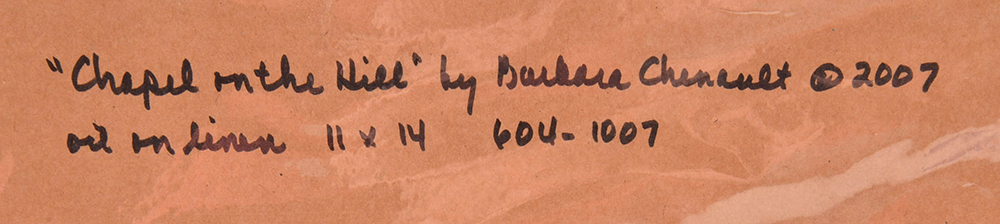 "Chapel on the Hill" by Barbara Chenault © 2007
oil on linen 11 x 14 604-1007